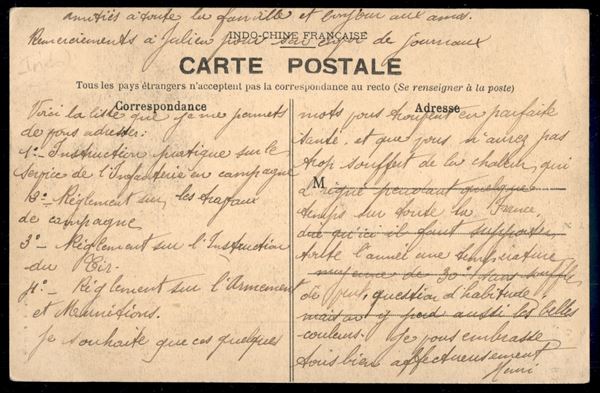 amitiés à toute la famille et bonjour aux amis.
Remerciements à Julien pour son envoi de journaux
INDO-CHINE FRANÇAISE
CARTE POSTALE
Tous les pays étrangers n'acceptent pas la correspondance au recto (Se renseigner à la poste)
Correspondance
Voici la liste que je me permets
de vous adresser:
1°- Instruction pratique sur le
service de l'Infanterie en campagne
2°- Réglement sur les travaux
de campagne
3°- Réglement sur l'Instruction
du Tir.
4°- Réglement sur l'Armement
et Munitions.
Je souhaite que ces quelques
Adresse
mots vous trouvent en parfaite
santé, et que vous n'aurez pas
trop souffert de la chaleur, qui
M
a régné pendant quelque
temps sur toute la France.
qu'ici il faut supporter
toute l'année une température
moyenne de 30° sans souffle
de vent, question d'habitude,
mais on y perd aussi les belles
couleurs. Je vous embrasse
tous bien affectueusement
Henri